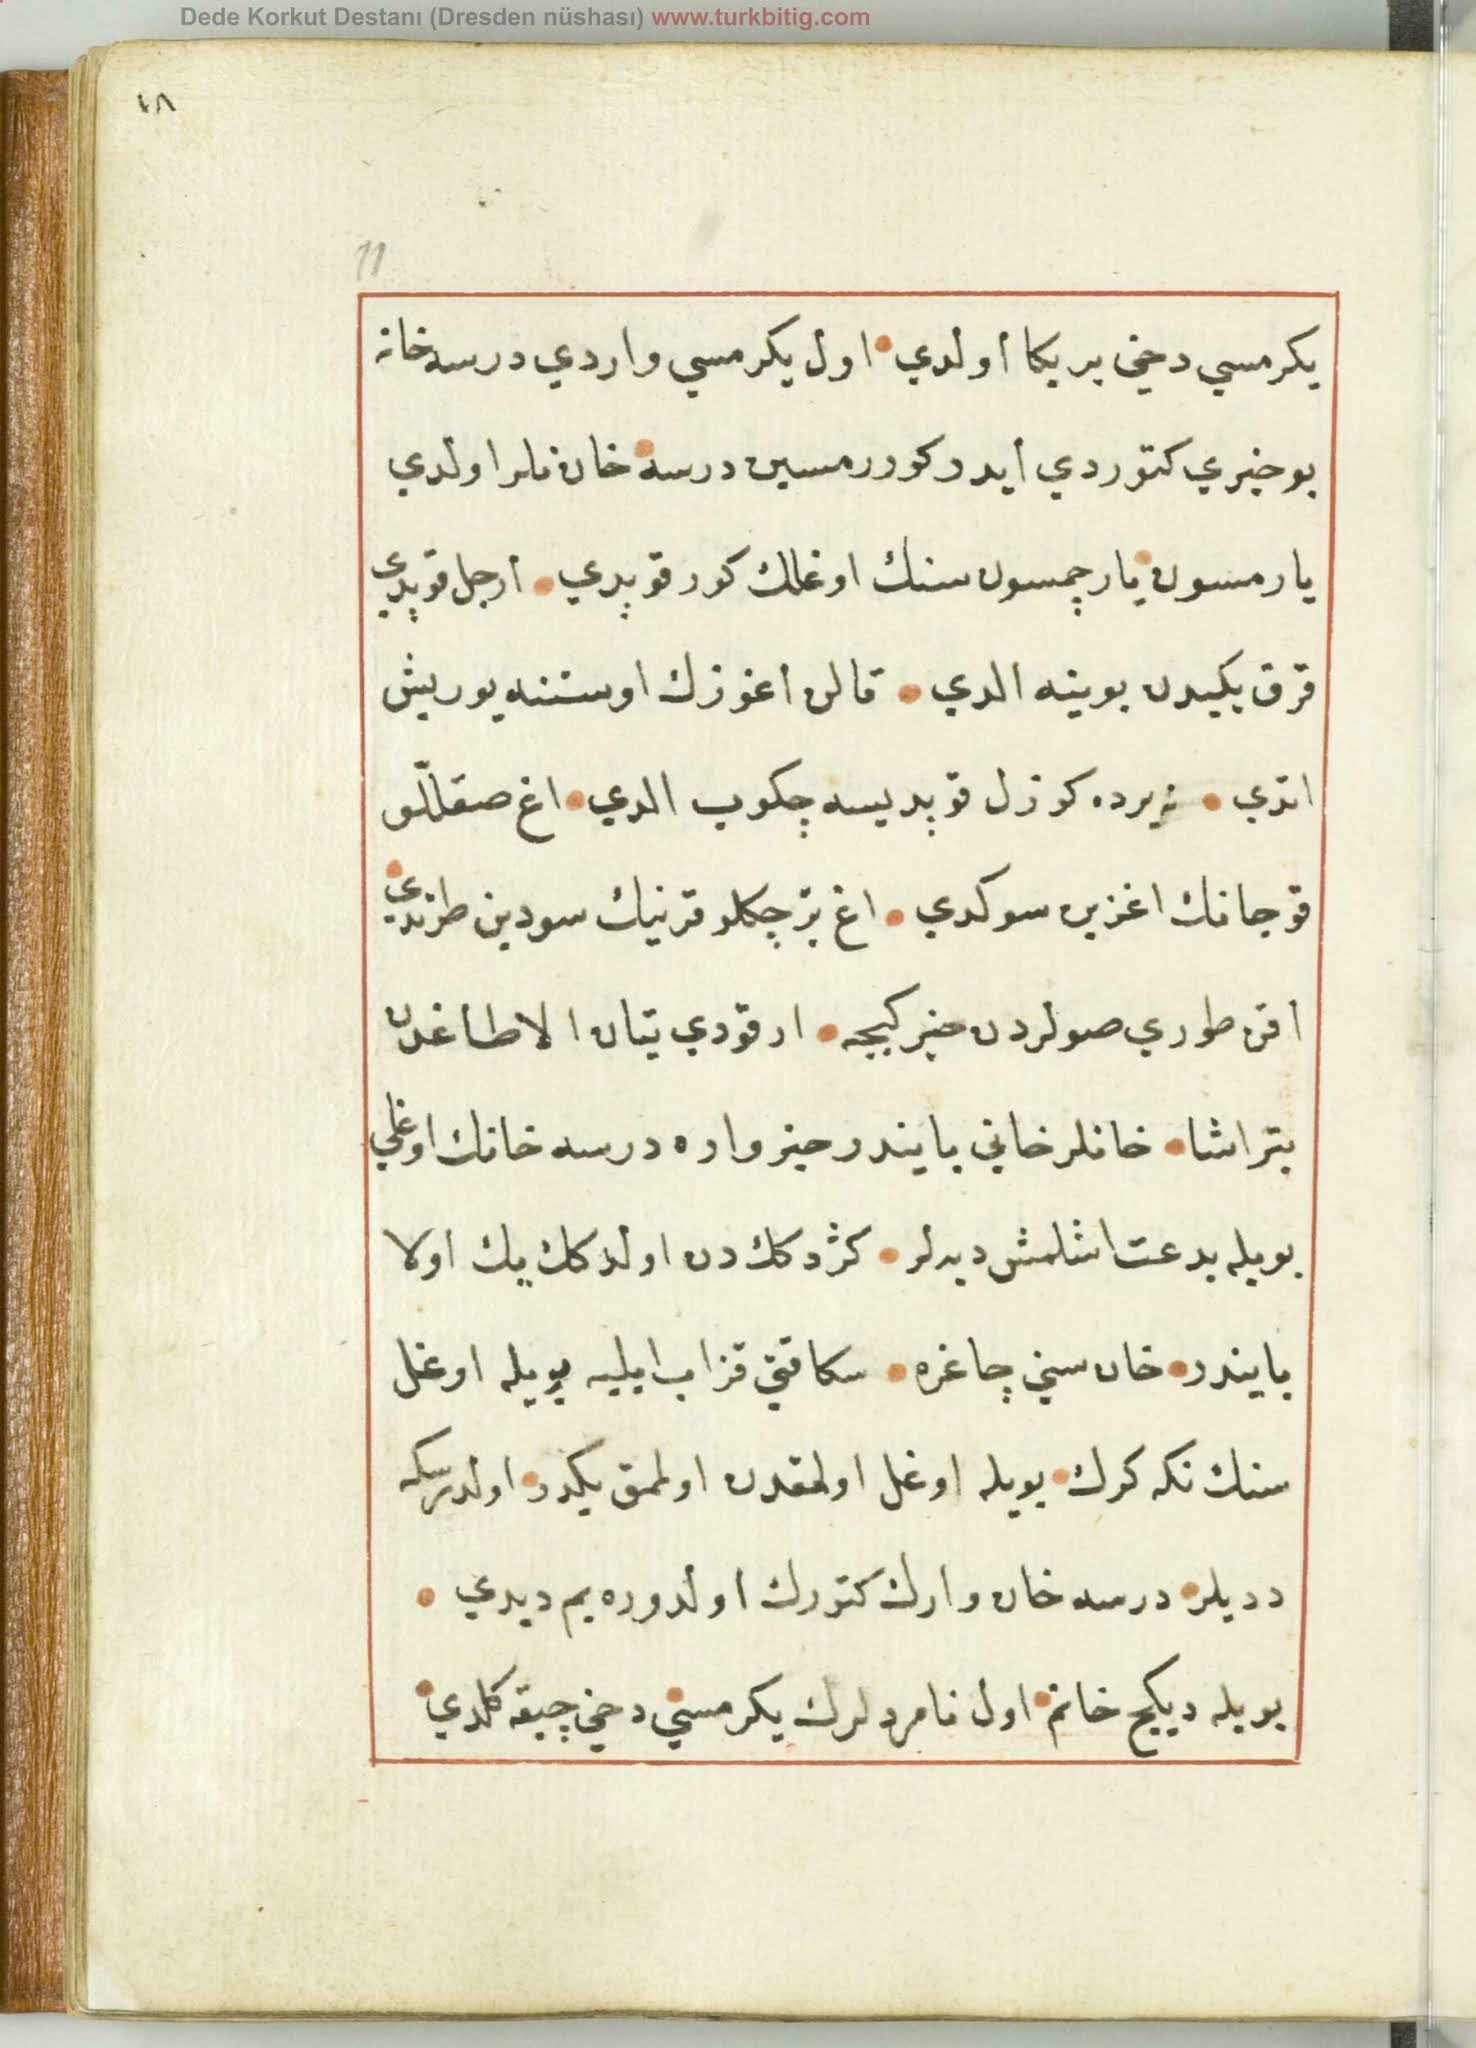 Dede Korkut Destanı (Dresden nüshası) www.turkbitig.com
١٨
11
يكرمسي دخي بر يكا أولدي اول يكرمسي واردي درسه خانه
بو خبري كتوردي أيدر كوررمسين درسه خان نلر اولدي
يارمسون يارچمسون سنك اوغلك كور قوپدي أرجل قوپدي
قرق يكيدن بوينه الدي قالن أغوزك اوستنه يوريش
اتدي نه يرده كوزل قوپديسه چكوب الدي اغ صقاللو
قوجانك اغزين سوكدي اغ برچكلو قرينك سودين طرتدي
اقن طوري صولردن خبر كيچه ارقوري يتان الا طاغدن
بتر اشا خانلر خاني بايندر خبر واره درسه خانك اوغلي
بويله بدعت اشلمش ديه لر كزدكك دن اولدكك يك اولا
بايندر خان سني چاغره سكا قتي قزاب ايليه بويله اوغل
سنك نكه كرك بويله اوغل اولمقدن اولممق يكدر اولدرسكه
دديلر درسه خان وارك كتورك اولدوره يم ديدي
بويله ديكج خانم اول نامردلرك يكرمسي دخي چيقه كلدي